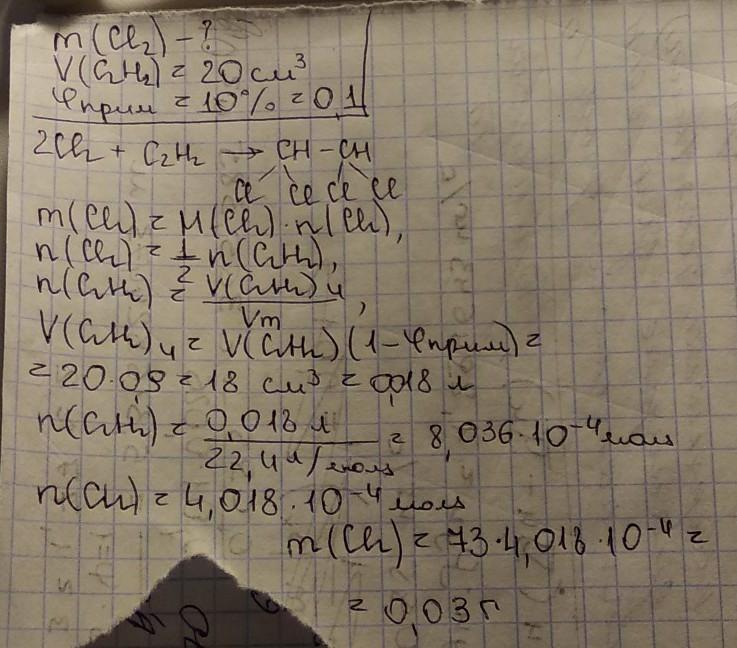 m(Cl₂) - ?
V(C₂H₂) = 20 см³
φприм = 10% = 0,1
2Cl₂ + C₂H₂ → CH - CH
Cl Cl Cl Cl
m(Cl₂) = M(Cl₂) · n(Cl₂),
n(Cl₂) = 1/2 n(C₂H₂),
n(C₂H₂) = V(C₂H₂)ч / Vm,
V(C₂H₂)ч = V(C₂H₂)(1-φприм) =
= 20·0,9 = 18 см³ = 0,018 л
n(C₂H₂) = 0,018 л / 22,4 л/моль = 8,036·10⁻⁴ моль
n(Cl₂) = 4,018·10⁻⁴ моль
m(Cl₂) = 73·4,018·10⁻⁴ =
= 0,03 г